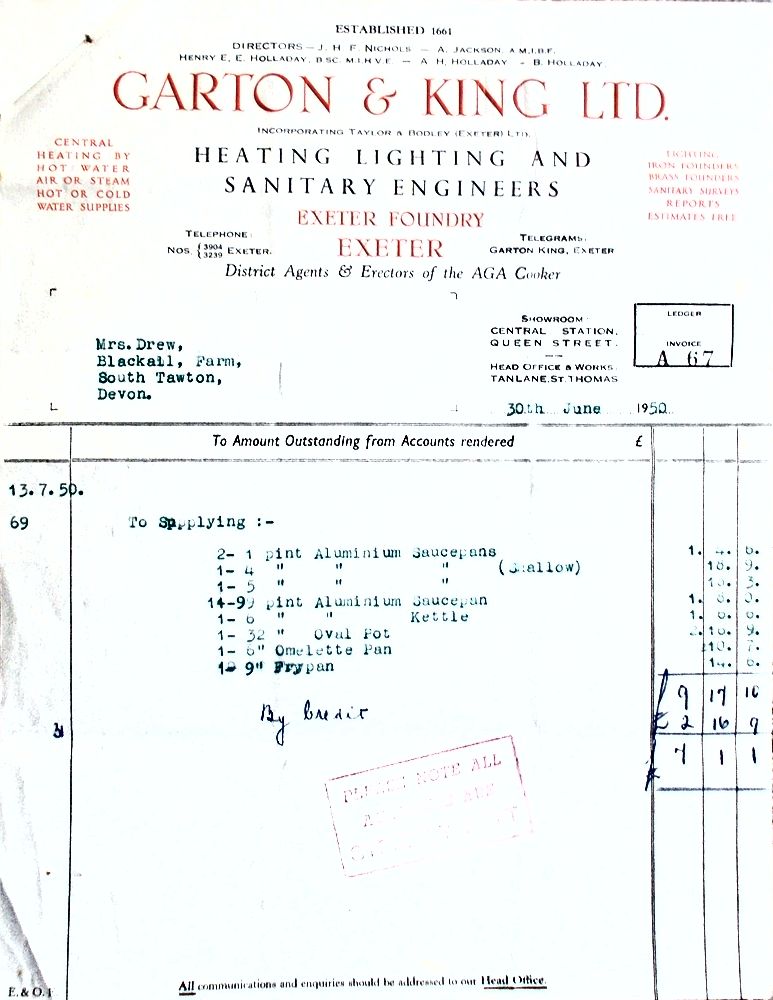 ESTABLISHED 1661
DIRECTORS — J. H. F. NICHOLS — A. JACKSON A.M.I.B.F.
HENRY E. E. HOLLADAY, B.SC. M.I.H.V.E. — A. H. HOLLADAY - B. HOLLADAY
GARTON & KING LTD.
INCORPORATING TAYLOR & BODLEY (EXETER) LTD.
HEATING LIGHTING AND
SANITARY ENGINEERS
CENTRAL
HEATING BY
HOT WATER
AIR OR STEAM
HOT OR COLD
WATER SUPPLIES
LIGHTING
IRON FOUNDERS
BRASS FOUNDERS
SANITARY SURVEYS
REPORTS
ESTIMATES FREE
EXETER FOUNDRY
EXETER
TELEPHONE:
NOS. {3904 3239 EXETER.
TELEGRAMS:
GARTON KING, EXETER
District Agents & Erectors of the AGA Cooker
Mrs. Drew,
Blackall, Farm,
South Tawton,
Devon.
SHOWROOM
CENTRAL STATION,
QUEEN STREET.
HEAD OFFICE & WORKS.
TAN LANE, ST. THOMAS
LEDGER
INVOICE
A 67
30th June 1950
To Amount Outstanding from Accounts rendered £
13.7.50.
69 To Supplying :-
2- 1 pint Aluminium Saucepans 1.
1- 4 " " " (Shallow) 9.
1- 5 " " " 3.
pint Aluminium Saucepan 1.
1- 6 " " Kettle 1.
1- 32 " Oval Pot 9.
1- 6" Omelette Pan 10. 7.
9" Frypan
9 17 10
By Credit £ 2 16 9
7 1 1
PLEASE NOTE ALL
All communications and enquiries should be addressed to our Head Office.
E. & O.